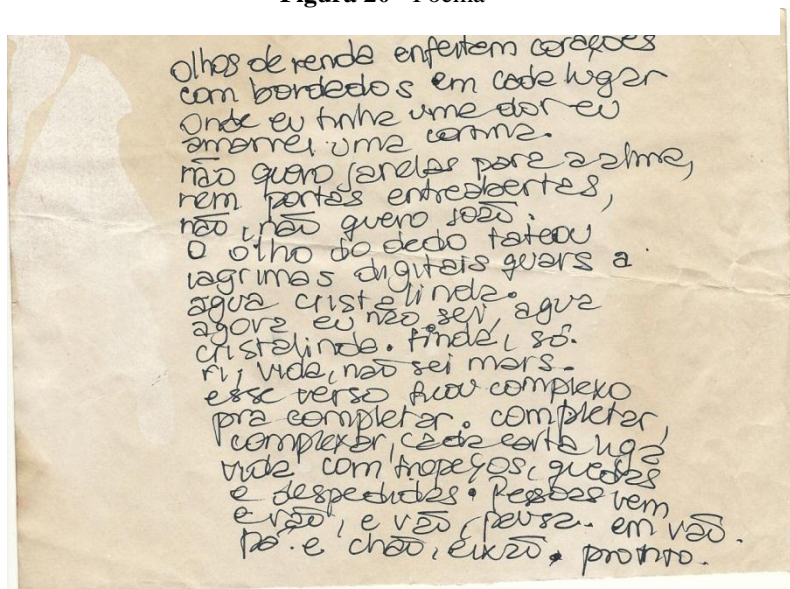 Figura 20 - Poema
olhos de renda enfeitam corações
com bordados em cada lugar
onde eu tinha uma dor eu
amarrei uma
não quero janelas para a alma,
nem portas entreabertas,
não, não quero
o olho do dedo tateou
lagrimas digitais a
agua cristalinda.
agora eu não sei, agua
cristalinda. linda, só.
ri, vida, não sei mais.
esse verso ficou complexo
pra completar. completar,
complexar, cada
vida com tropeços, quedas
e despedidas. Pessoas vem
e vão, e vão, pausa. em vão.
pó e chão, pronto.